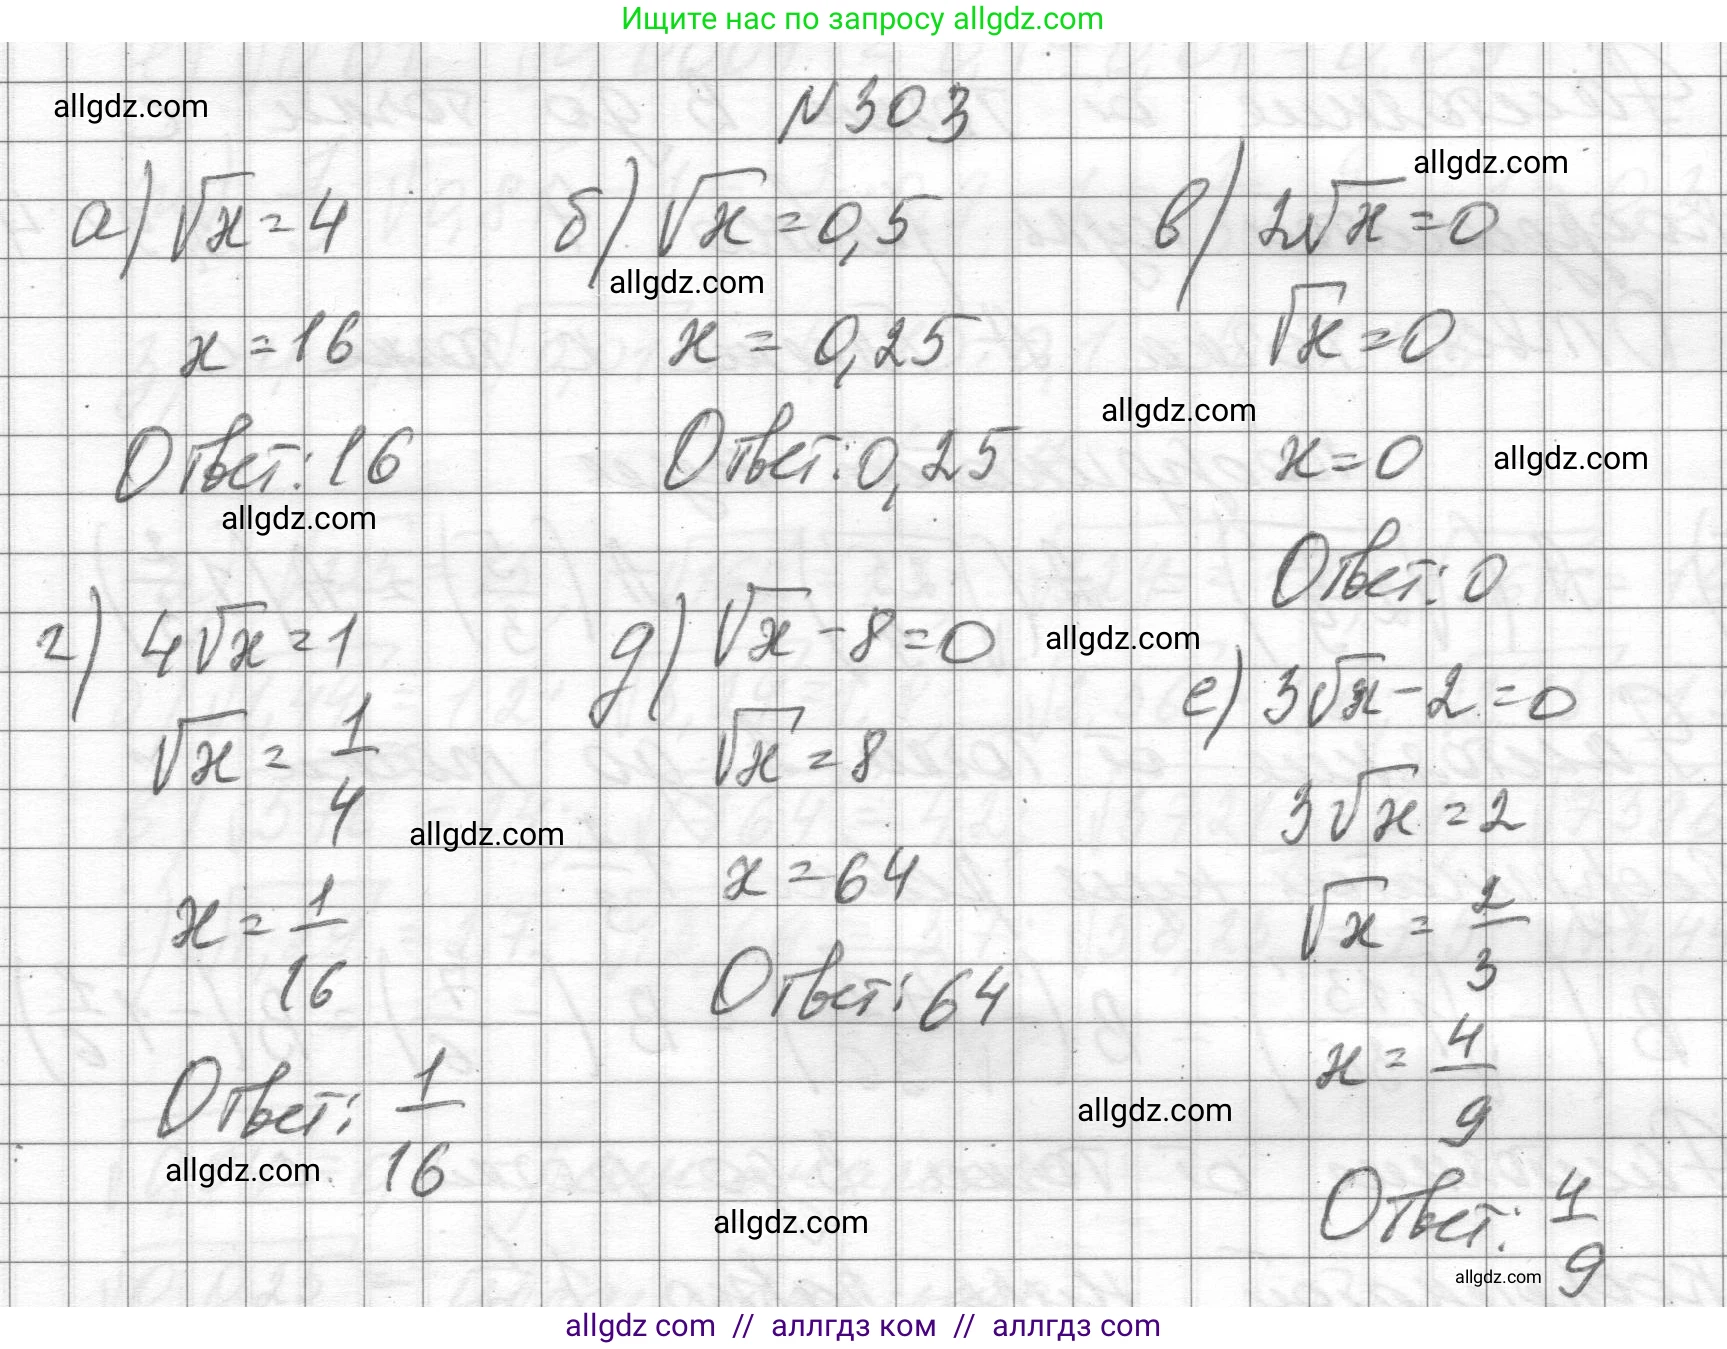 Ищите нас по запросу allgdz.com
allgdz.com
N303
allgdz.com
а) √x = 4
x = 16
Ответ: 16
allgdz.com
б) √x = 0,5
allgdz.com
x = 0,25
Ответ: 0,25
в) 2√x = 0
√x = 0
allgdz.com
x = 0
allgdz.com
Ответ: 0
г) 4√x = 1
√x = 1/4
allgdz.com
x = 1/16
Ответ: 1/16
allgdz.com
д) √x - 8 = 0
allgdz.com
√x = 8
x = 64
Ответ: 64
allgdz.com
е) 3√x - 2 = 0
3√x = 2
√x = 2/3
x = 4/9
allgdz.com
Ответ: 4/9
allgdz.com
allgdz com // аллгдз ком // аллгдз com